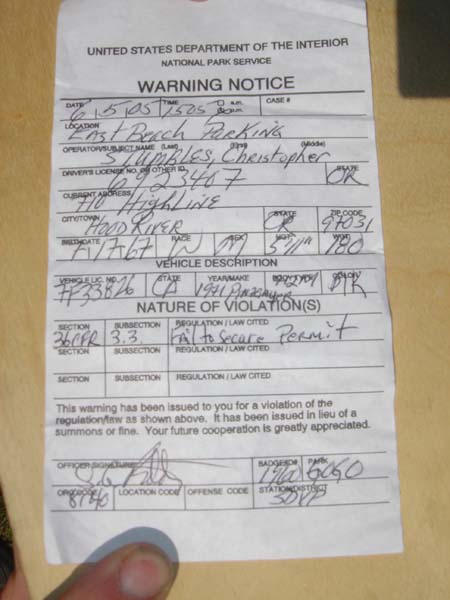 UNITED STATES DEPARTMENT OF THE INTERIOR
NATIONAL PARK SERVICE
WARNING NOTICE
DATE TIME a.m. p.m. CASE #
6.5.05 1505
LOCATION
East Beach Parking
OPERATOR/SUBJECT NAME (Last) (First) (Middle)
Stumbles, Christopher
DRIVER'S LICENSE NO. OR OTHER ID. STATE
6923407 OR
CURRENT ADDRESS
710 Highline
CITY/TOWN STATE ZIP CODE
Hood River OR 97031
BIRTHDATE RACE SEX HGT WGT
W M 5'11" 180
VEHICLE DESCRIPTION
VEHICLE LIC. NO. STATE YEAR/MAKE BODY TYPE COLOR
7F33826 CA 1971 Pinzgauer
NATURE OF VIOLATION(S)
SECTION SUBSECTION REGULATION / LAW CITED
36CFR 3.3. Fail to Secure Permit
SECTION SUBSECTION REGULATION / LAW CITED
SECTION SUBSECTION REGULATION / LAW CITED
This warning has been issued to you for a violation of the
regulation/law as shown above. It has been issued in lieu of a
summons or fine. Your future cooperation is greatly appreciated.
OFFICER SIGNATURE BADGE/ID# PARK
GOGO
ORG CODE LOCATION CODE OFFENSE CODE STATION/DISTRICT
8140